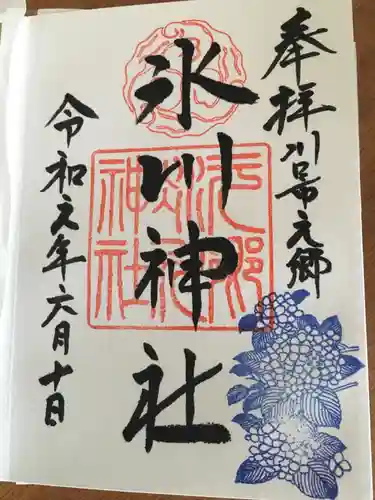 奉拝 川口市元郷
氷川神社
令和元年六月十日
元郷
氷川
神社